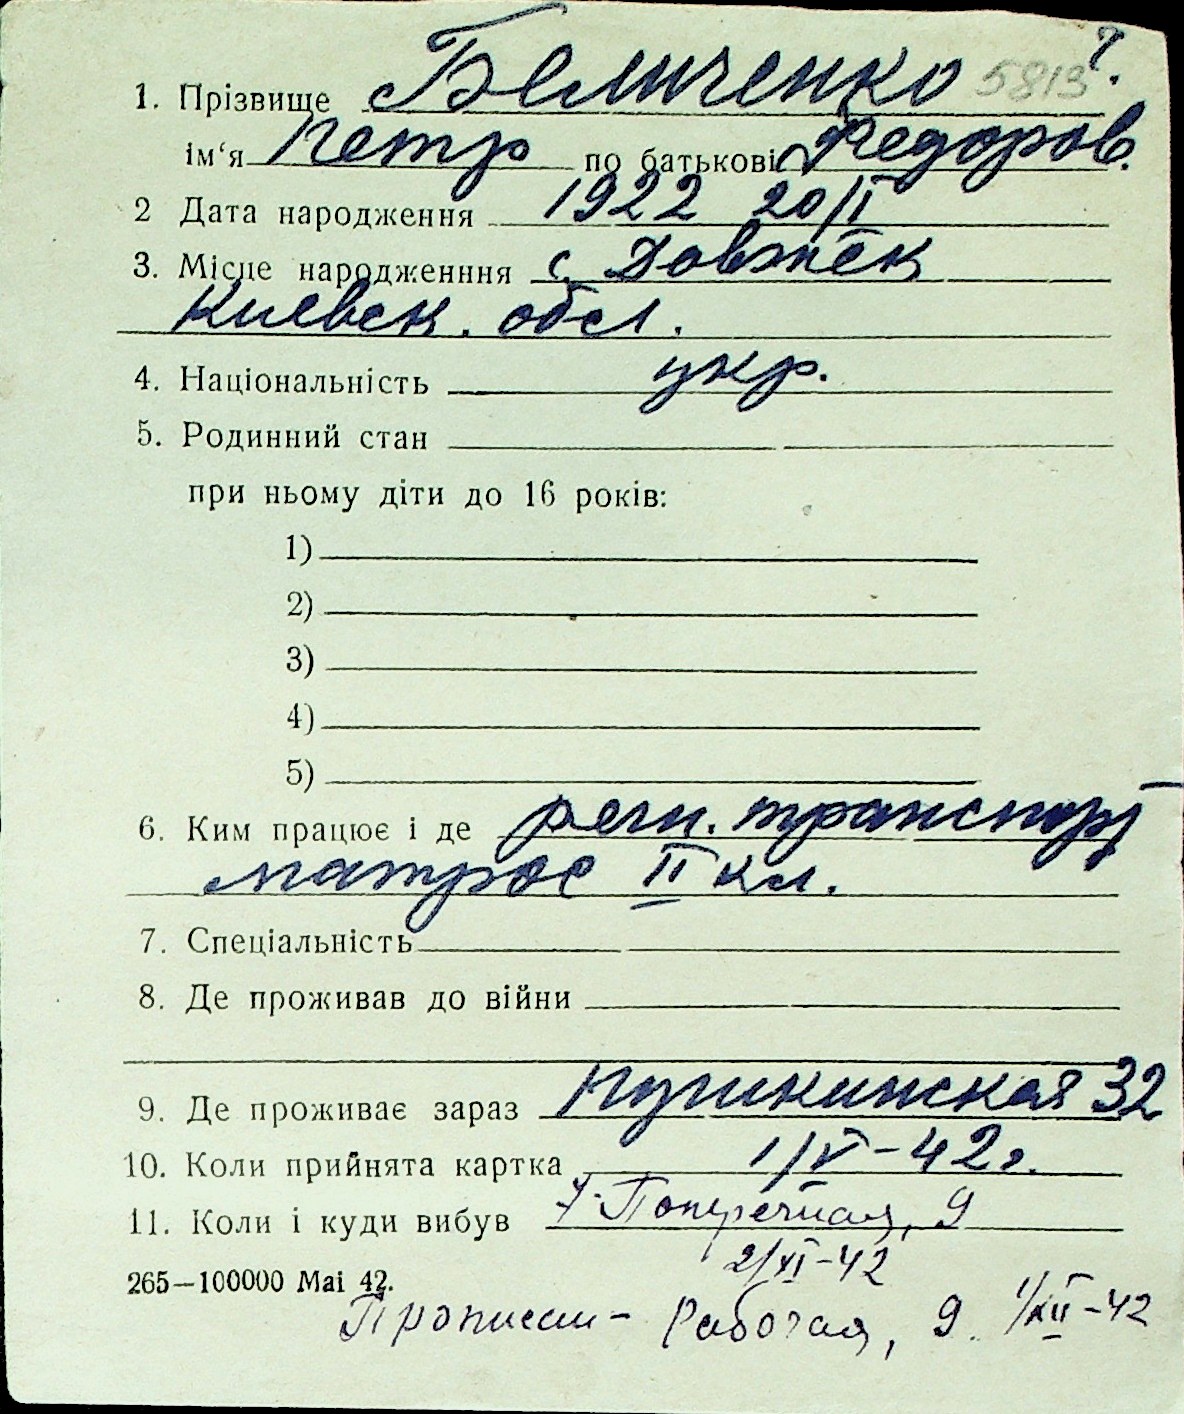 7.
1. Прізвище Беличенко 5813
ім‘я Петр по батькові Федоров.
2 Дата народження 1922 20/I
3. Місце народженння с. Довжек
Киевск. обл.
4. Національність укр.
5. Родинний стан
при ньому діти до 16 років:
1)
2)
3)
4)
5)
6. Ким працює і де речн. транспорт
матрос II кл.
7. Спеціальність
8. Де проживав до війни
9. Де проживає зараз Пушкинская 32
10. Коли прийнята картка 1/V-42г.
11. Коли і куди вибув 7-Поперечная, 9
2/XI-42
265—100000 Mai 42.
Прописан- Рабочая, 9. 1/XII-42